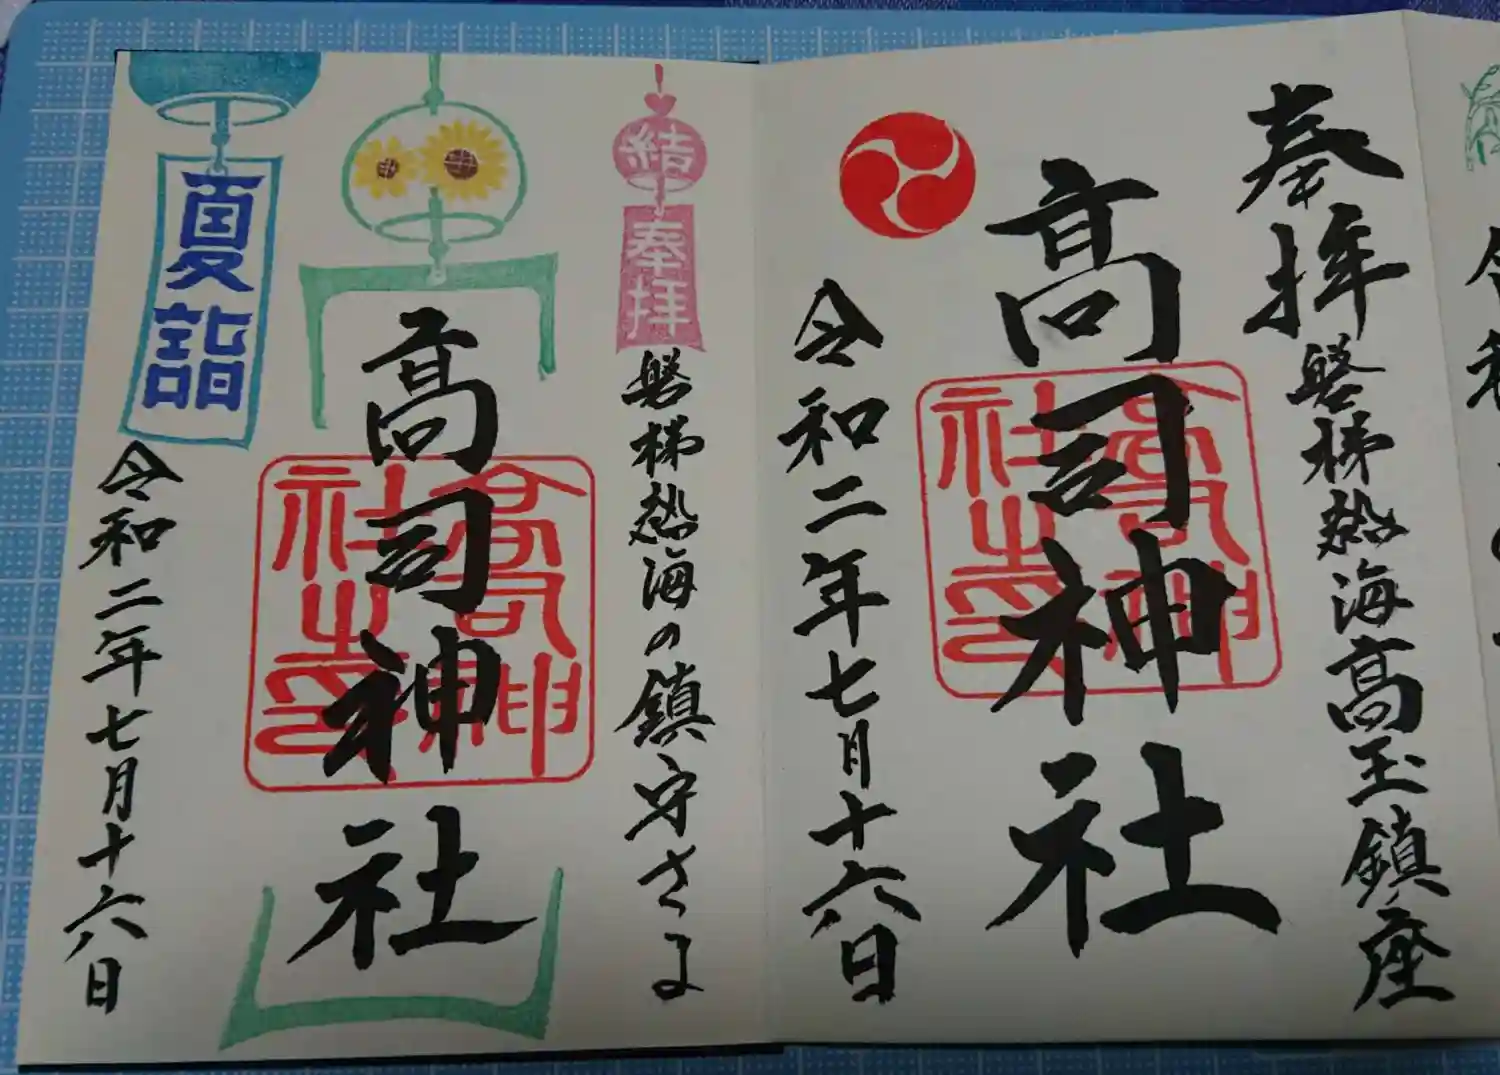 奉拝
磐梯熱海高玉鎮座
高司神社
高司神社之印
令和二年七月十六日
結
奉拝
磐梯熱海の鎮守さま
高司神社
高司神社之印
夏詣
令和二年七月十六日
令和